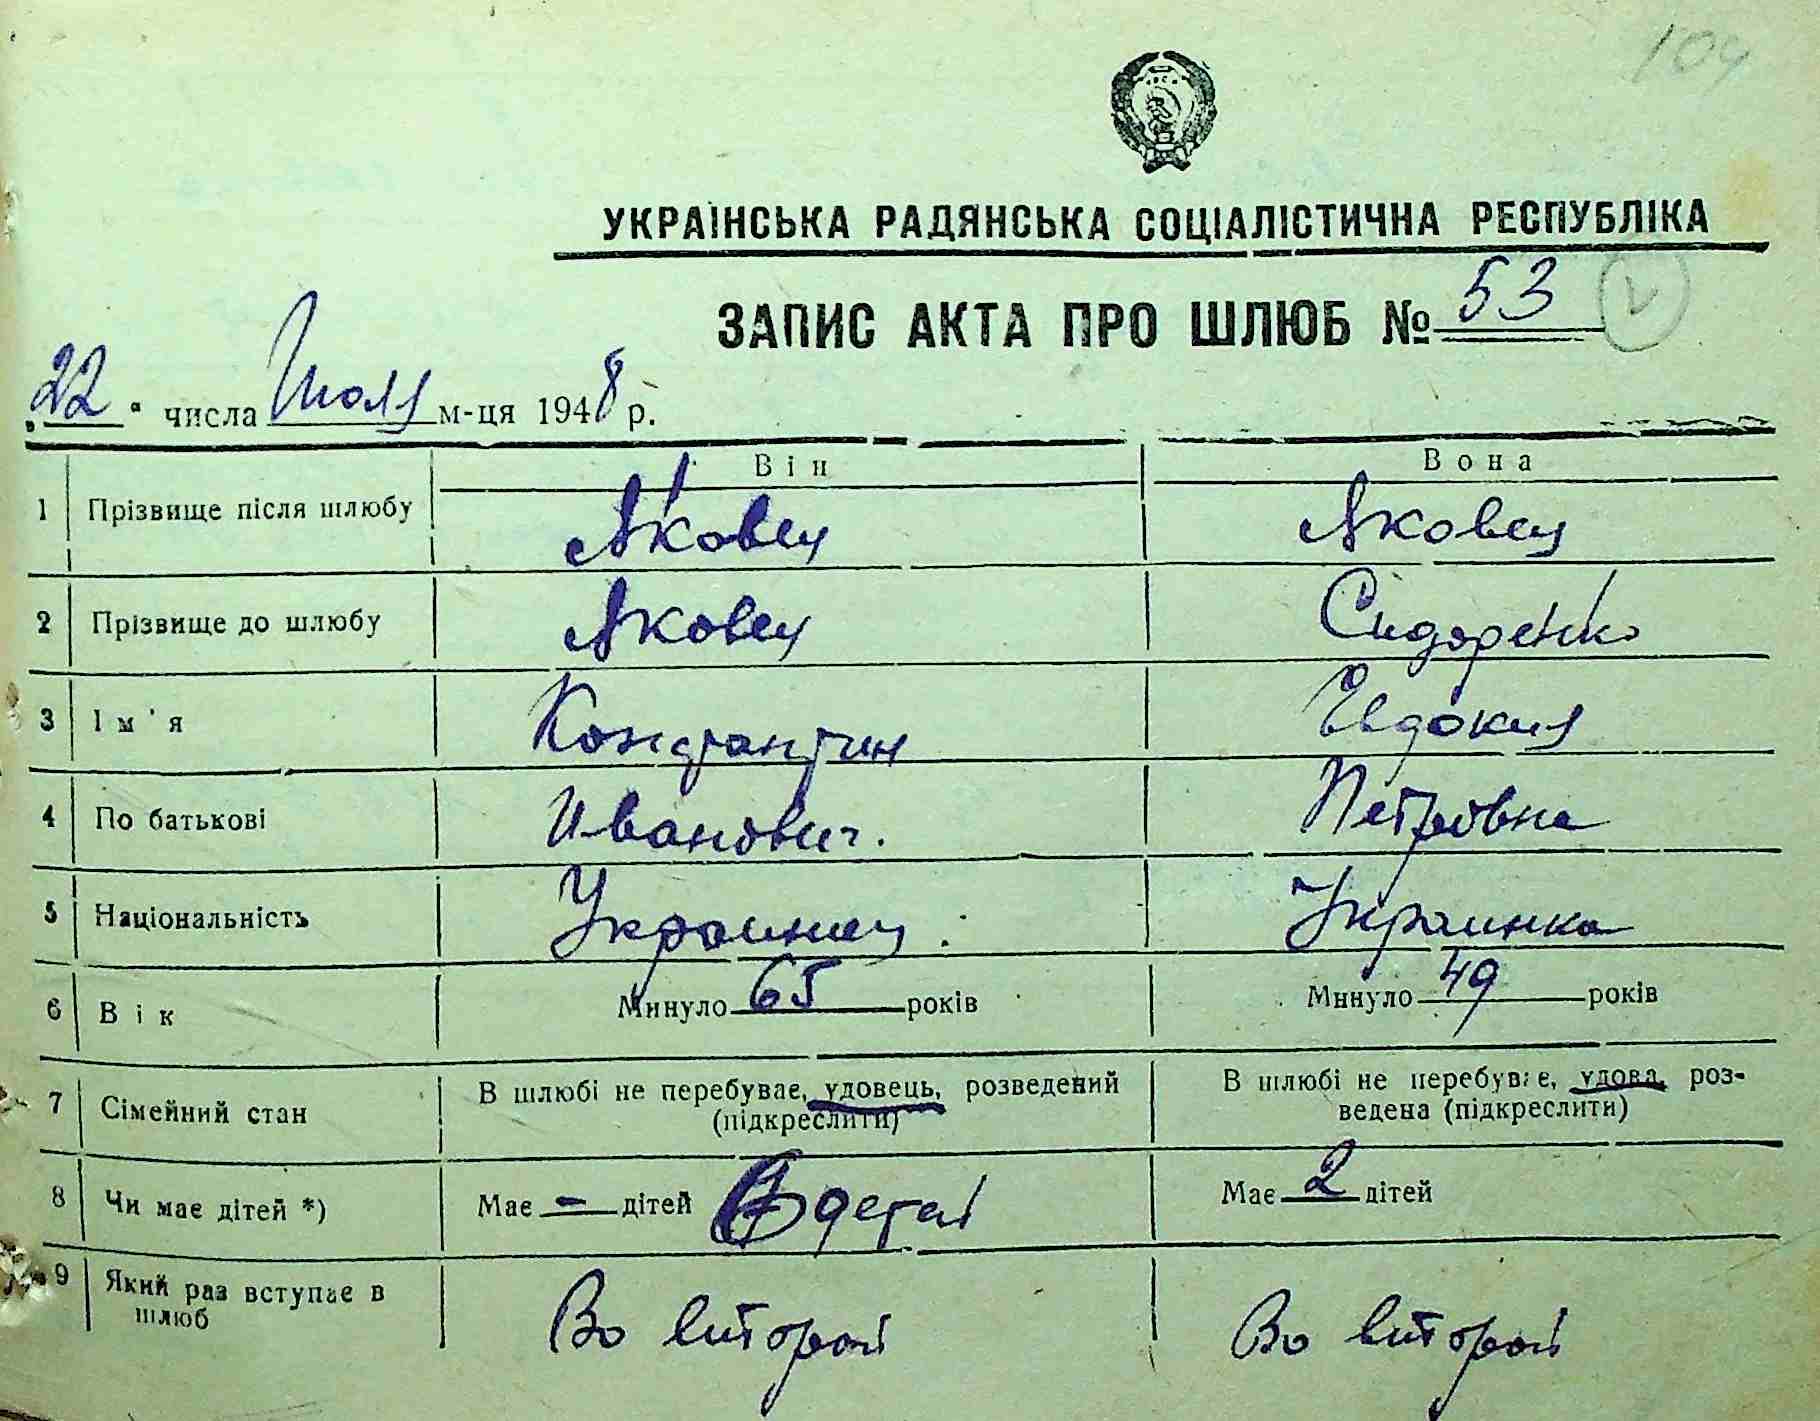 104
УКРАЇНСЬКА РАДЯНСЬКА СОЦІАЛІСТИЧНА РЕСПУБЛІКА
ЗАПИС АКТА ПРО ШЛЮБ № 53
„22" числа Июля м-ця 1948 р.
Він Вона
1 Прізвище після шлюбу Яковец Яковец
2 Прізвище до шлюбу Яковец Сидоренко
3 Ім'я Константин Евдокия
4 По батькові Иванович. Петровна
5 Національність Украинец. Украинка
6 Вік Минуло 65 років Минуло 49 років
7 Сімейний стан В шлюбі не перебуває, удовець, розведений (підкреслити) В шлюбі не перебуває, удова, роз-
ведена (підкреслити)
8 Чи має дітей *) Має - дітей детей Має 2 дітей
9 Який раз вступає в Во второй Во второй
шлюб